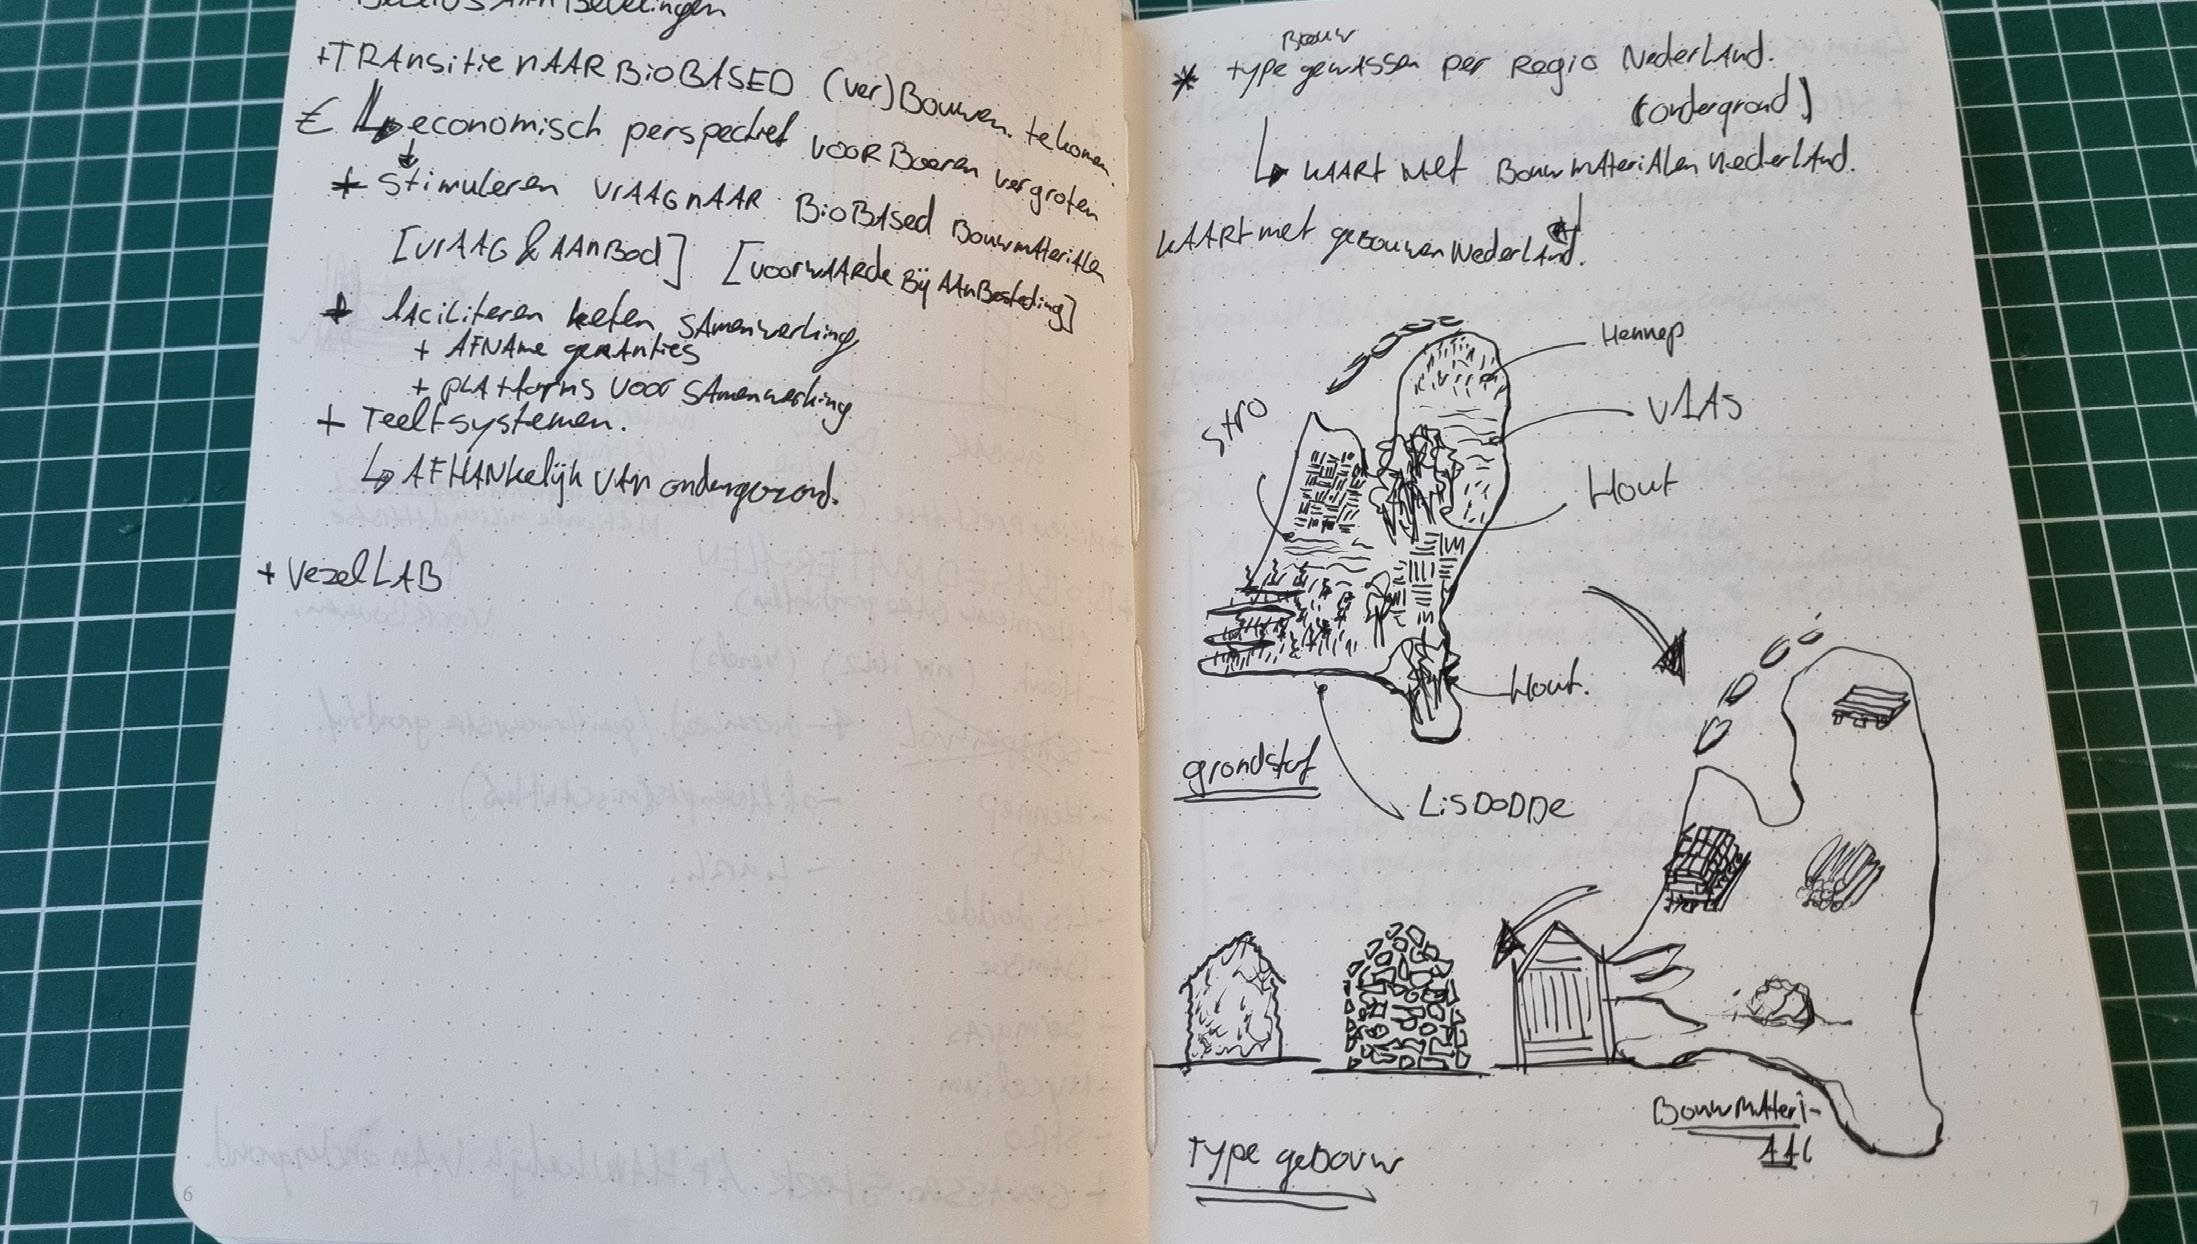 Beleidsaanbevelingen
+ TRAnsitie nAAR BioBASED (ver)Bouwen. te komen.
€ ↳ economisch perspectief voor Boeren vergroten
+ stimuleren vrAAg nAAR BioBAsed Bouwmaterialen
[vrAAG & AAnBod] [voorwAArde Bij AAnBesteding]
+ fAciliteren keten samenwerking
+ AFNAme garanties
+ plAtforms voor sAmenwerking
+ Teeltsystemen.
↳ AFHANkelijk vAn ondergrond.
+ vezelLAB
6
Bouw
* type gewAssen per Regio NederlAnd.
(ondergrond)
↳ kAARt met BouwmAteriAlen NederlAnd.
kAARt met gebouwen NederlAnd.
Hennep
stro
vlAs
Hout
Hout.
grondstof
LisDoDDe
BouwmAteri-
AAl
Type gebouw
7